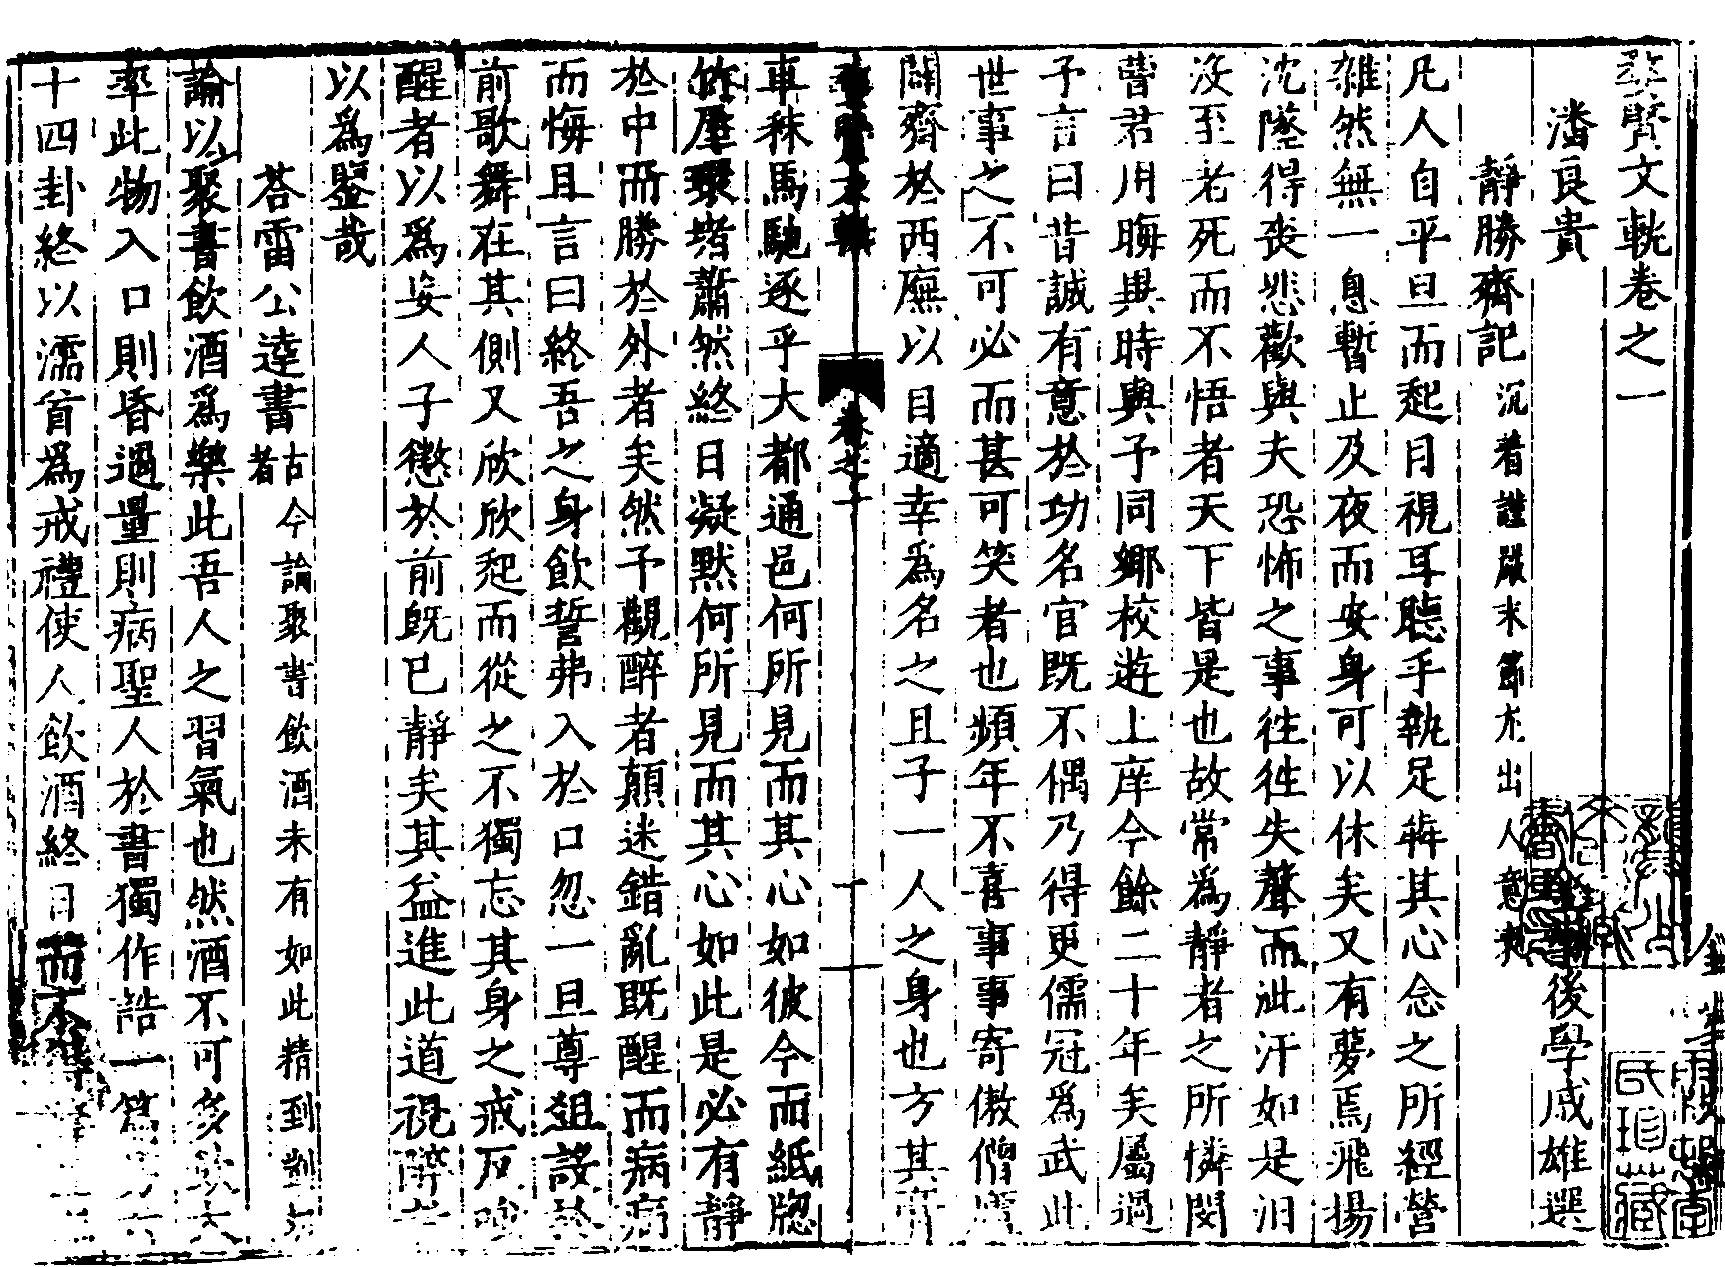 婺賢文軌卷之一
潘良貴　後學戚雄選
靜勝齋記 沉着謹嚴末節尤出人意表
凡人自平旦而起目視耳聽手執足犇其心念之所經營
雜然無一息暫止及夜而安身可以休矣又有夢焉飛揚
沈墜得喪悲歡與夫恐怖之事往往失聲而泚汗如是汩
沒至老死而不悟者天下皆是也故常爲靜者之所憐閔
曾君用晦與時與予同鄉校遊上庠今餘二十年矣屬過
予言曰昔誠有意於功名官既不偶乃得更儒冠爲武此
世事之不可必而甚可笑者也頻年不喜事事寄傲僧廬
闢齋於西廡以目適幸爲名之且子一人之身也方其
婺賢文軌 卷之一 一
車秣馬馳逐乎大都通邑何所見而其心如彼今而紙牕
竹屋環堵蕭然終日凝默何所見而其心如此是必有靜
於中而勝於外者矣然予觀醉者顛迷錯亂既醒而病病
而悔且言曰終吾之身飲誓弗入於口忽一旦尊俎設於
前歌舞在其側又欣欣起而從之不獨忘其身之戒反
醒者以爲妄人子懲於前既已靜矣其益進此道視醉者
以爲鑒哉
荅雷公逵書 古今論聚書飲酒未有如此精到剴切者
論以聚書飲酒爲樂此吾人之習氣也然酒不可多飲六
率此物入口則昏過量則病聖人於書獨作誥一篇
十四卦終以濡首爲戒禮使人飲酒終日而不得